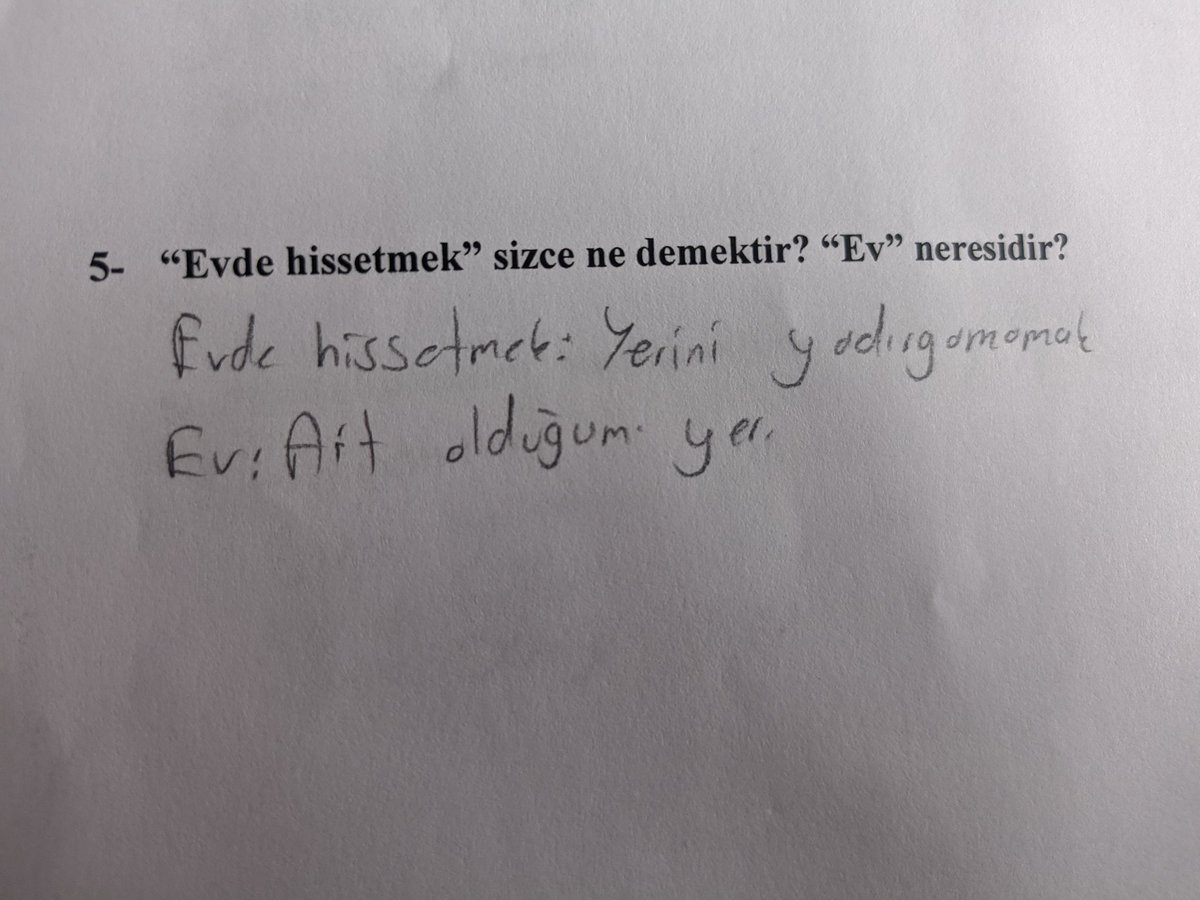 5- “Evde hissetmek” sizce ne demektir? “Ev” neresidir?
Evde hissetmek: Yerini yadırgamamak
Ev: Ait olduğum yer.